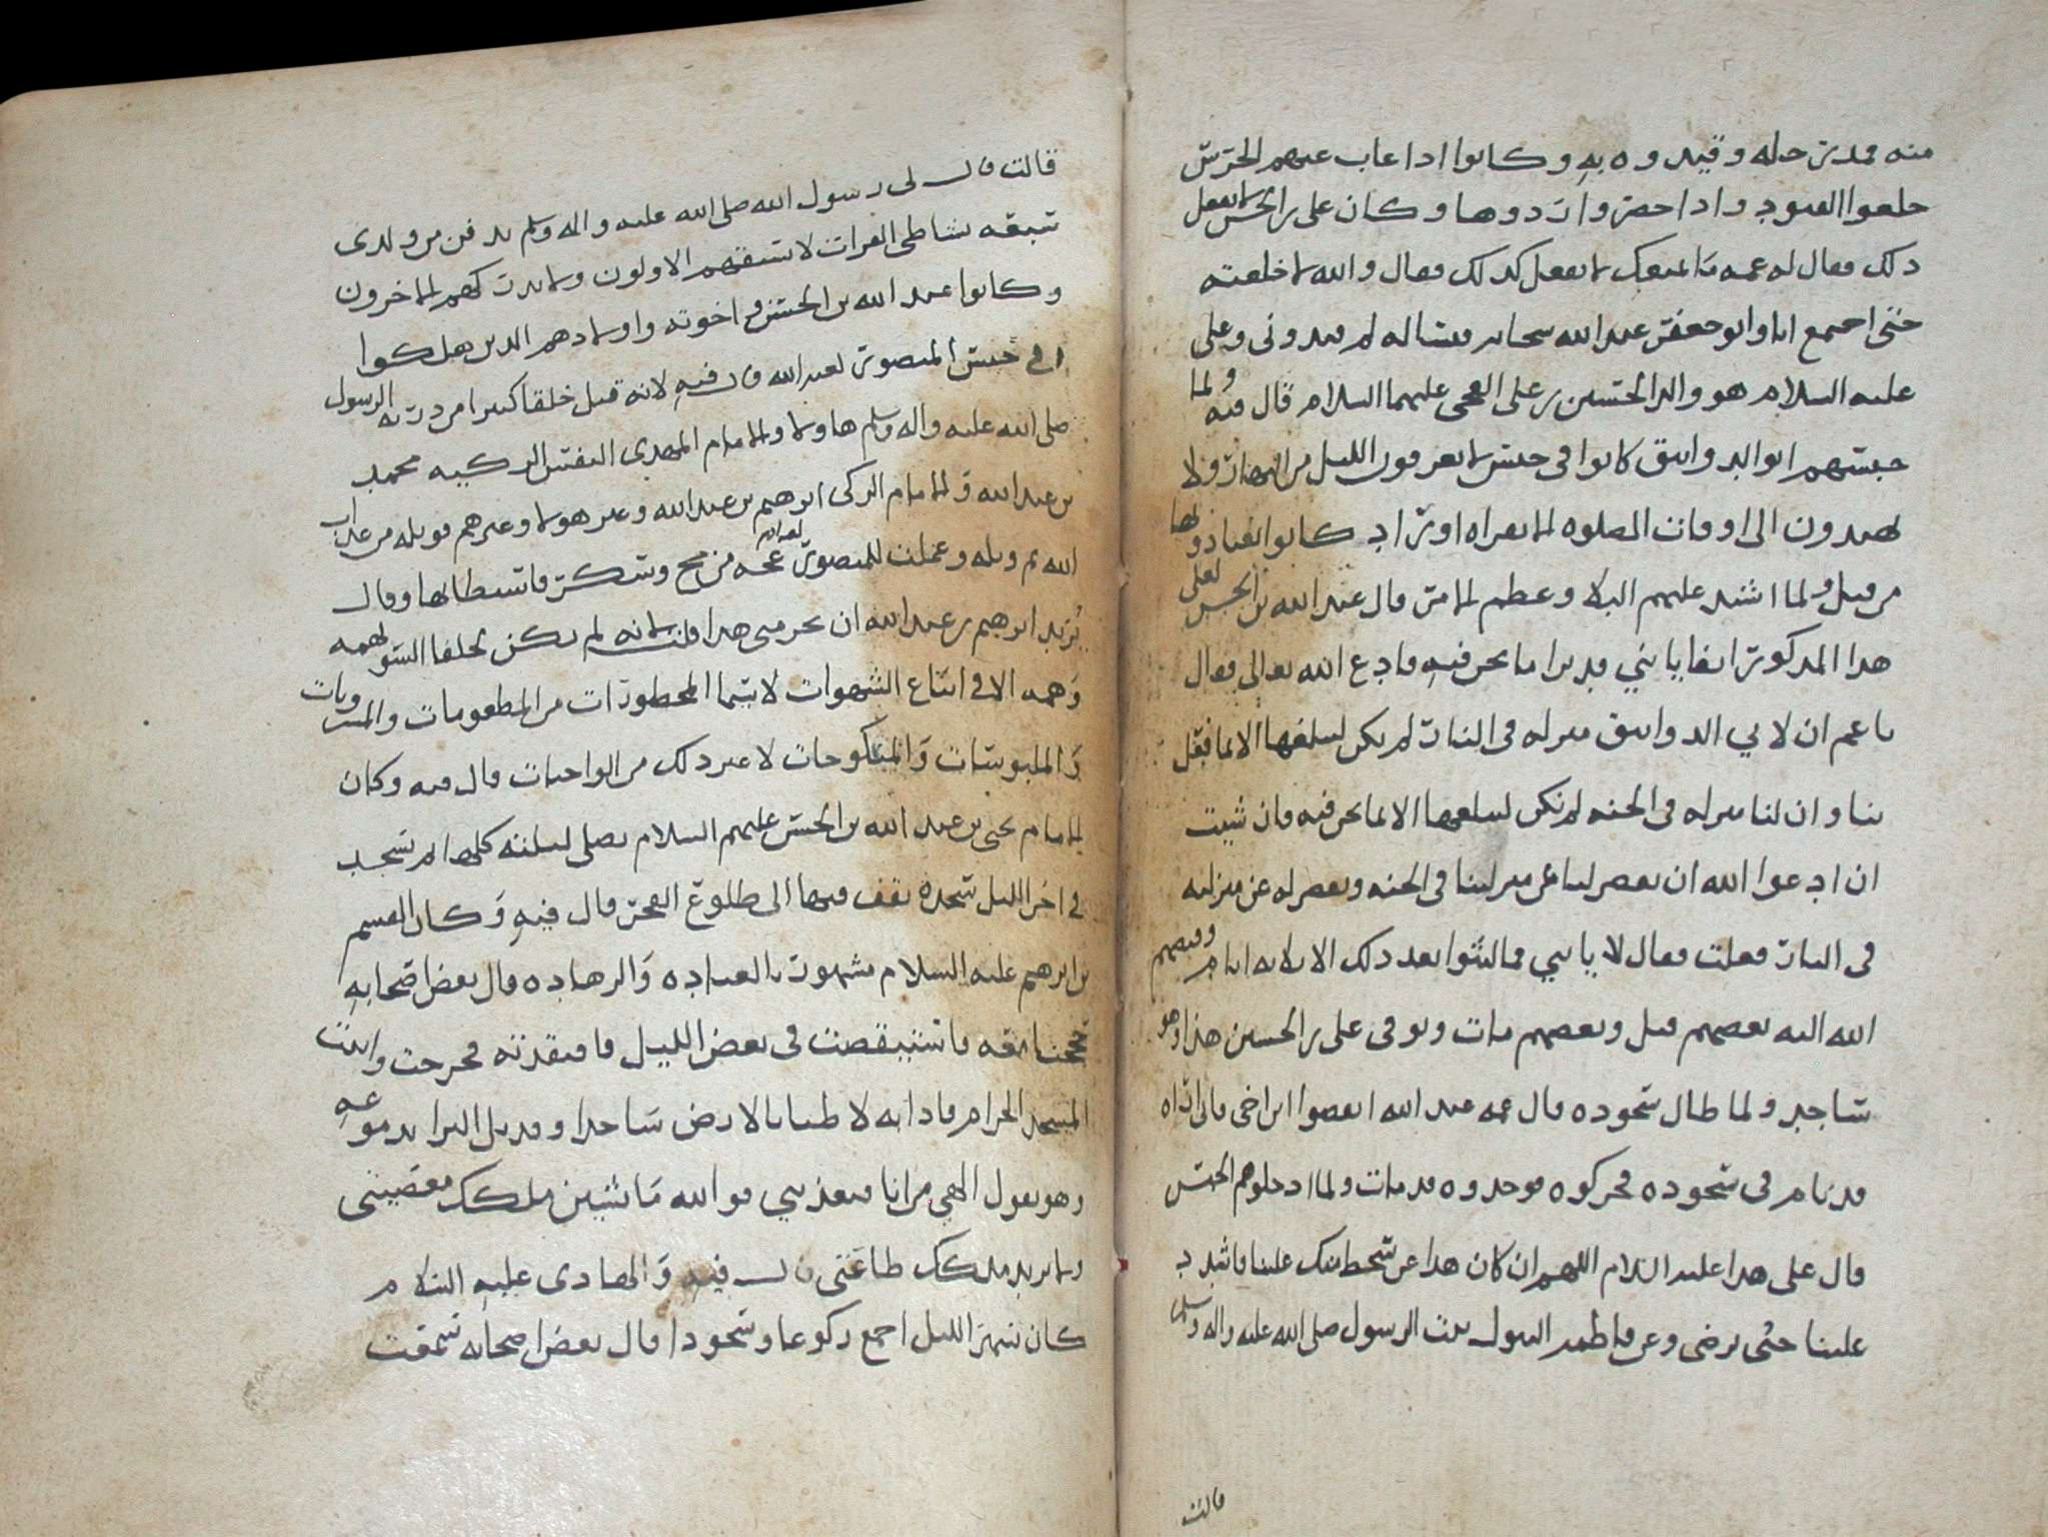 منه فمد رجله وقيدوه به وكانوا اذا غاب عنهم الحرس
خلعوا القيود واذا حضروا ردوها وكان علي بن الحسن لا يفعل
ذلك فقال له عمه ما يمنعك لا تفعل كذلك فقال والله لا خلعته
حتى اجتمع انا وابو جعفر عند الله سبحانه فيسأله لم قيدوني وعلي
عليه السلام هو والد الحسين بن علي الفخي عليهما السلام قال فيه ولما
حبسهم ابو الدوانيق كانوا في حبس لا يعرفون الليل من النهار ولا
يهتدون الى اوقات الصلوه الا بقراه اوراد كانوا اعتادوها
من قبل ولما اشتد عليهم البلا وعظم الامر قال عبد الله بن الحسن لعلي
هذا المذكور انفا يا بني قد ترا ما نحن فيه فادع الله تعالى فقال
يا عم ان لابي الدوانيق منزله في النار لم يكن ليبلغها الا بما فعل
بنا وان لنا منزله في الجنه لم نكن لنبلغها الا بما نحن فيه فان شيت
ان ادعوا الله ان يقصر لنا عن منزلتنا في الجنه ويقصر له عن منزلته
في النار فعلت فقال لا يا بني فما لبثوا بعد ذلك الا ثلاثه ايام وقبضهم
الله اليه بعضهم قتل وبعضهم مات وتوفي علي بن الحسين هذا وهو
ساجد ولما طال سجوده قال عمه عبد الله ايقضوا ابن اخي فاني اراه
قد نام في سجوده فحركوه فوجدوه قد مات ولما ادخلوهم الحبس
قال علي هذا عليه السلام اللهم ان كان هذا عن سخط منك علينا فاشدد
علينا حتى ترضى وعن فاطمه البتول بنت الرسول صلى الله عليه واله وسلم
قالت
قالت قال لي رسول الله صلى الله عليه واله وسلم يدفن من ولدي
سبعه بشاطي الفرات لا يسبقهم الاولون ولا يدركهم الاخرون
وكانوا عبد الله بن الحسن واخوته واولادهم الذين هلكوا
في حبس المنصور لعنه الله قال فيه لانه قتل خلقا كثيرا من ذريه الرسول
صلى الله عليه واله وسلم هاولا والامام المهدي النفس الزكيه محمد
بن عبد الله والامام الزكي ابرهيم بن عبد الله وغير هولا وغيرهم فويله من عذاب
الله ثم ويله وعملت للمنصور لعنه الله عجه من مخ وسكر فاستطابها وقال
يريد ابرهيم بن عبد الله ان يحرمني هذا قلت لانه لم يكن لخلفا السو نهمه
وهمه الا في اتباع الشهوات لا سيما المحظورات من المطعومات والمشروبات
والملبوسات والمنكوحات لا غير ذلك من الواجبات قال فيه وكان
الامام يحيى بن عبد الله بن الحسن عليهم السلام يصلي ليلته كلها ثم يسجد
في اخر الليل سجده يقف فيها الى طلوع الفجر قال فيه وكان القسم
بن ابرهيم عليه السلام مشهور بالعباده والزهاده قال بعض اصحابه
حججنا معه فاستيقضت في بعض الليل فافتقدته فخرجت واتيت
المسجد الحرام فاذا به لاطيا بالارض ساجدا وقد بل الثرا بدموعه
وهو يقول الهي من انا فتعذبني فوالله ما تشين ملكك معصيتي
ولا يزيد ملكك طاعتي قال فيه والهادي عليه السلام
كان يسهر الليل اجمع ركوعا وسجودا قال بعض اصحابه سمعت